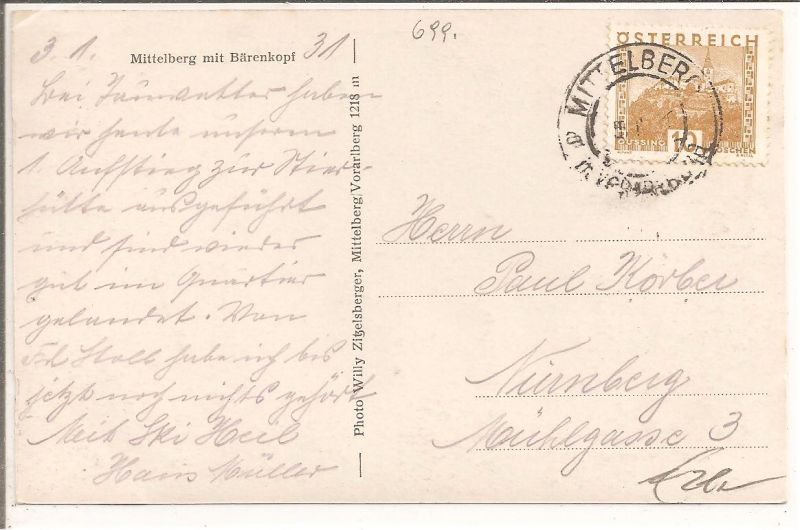 699.
3. 1. Mittelberg mit Bärenkopf 31
Bei Tauwetter haben
wir heute unseren
1. Aufstieg zur Stier-
hütte ausgeführt
und sind wieder
gut im Quartier
gelandet. Von
Frl Stoll habe ich bis
jetzt noch nichts gehört
Mit Ski Heil
Hans Müller
Photo Willy Zitzelsberger, Mittelberg/Vorarlberg 1218 m
ÖSTERREICH
GÜSSING 10 GROSCHEN
MITTELBERG
Herrn
Paul Körber
Nürnberg
Mühlgasse 3